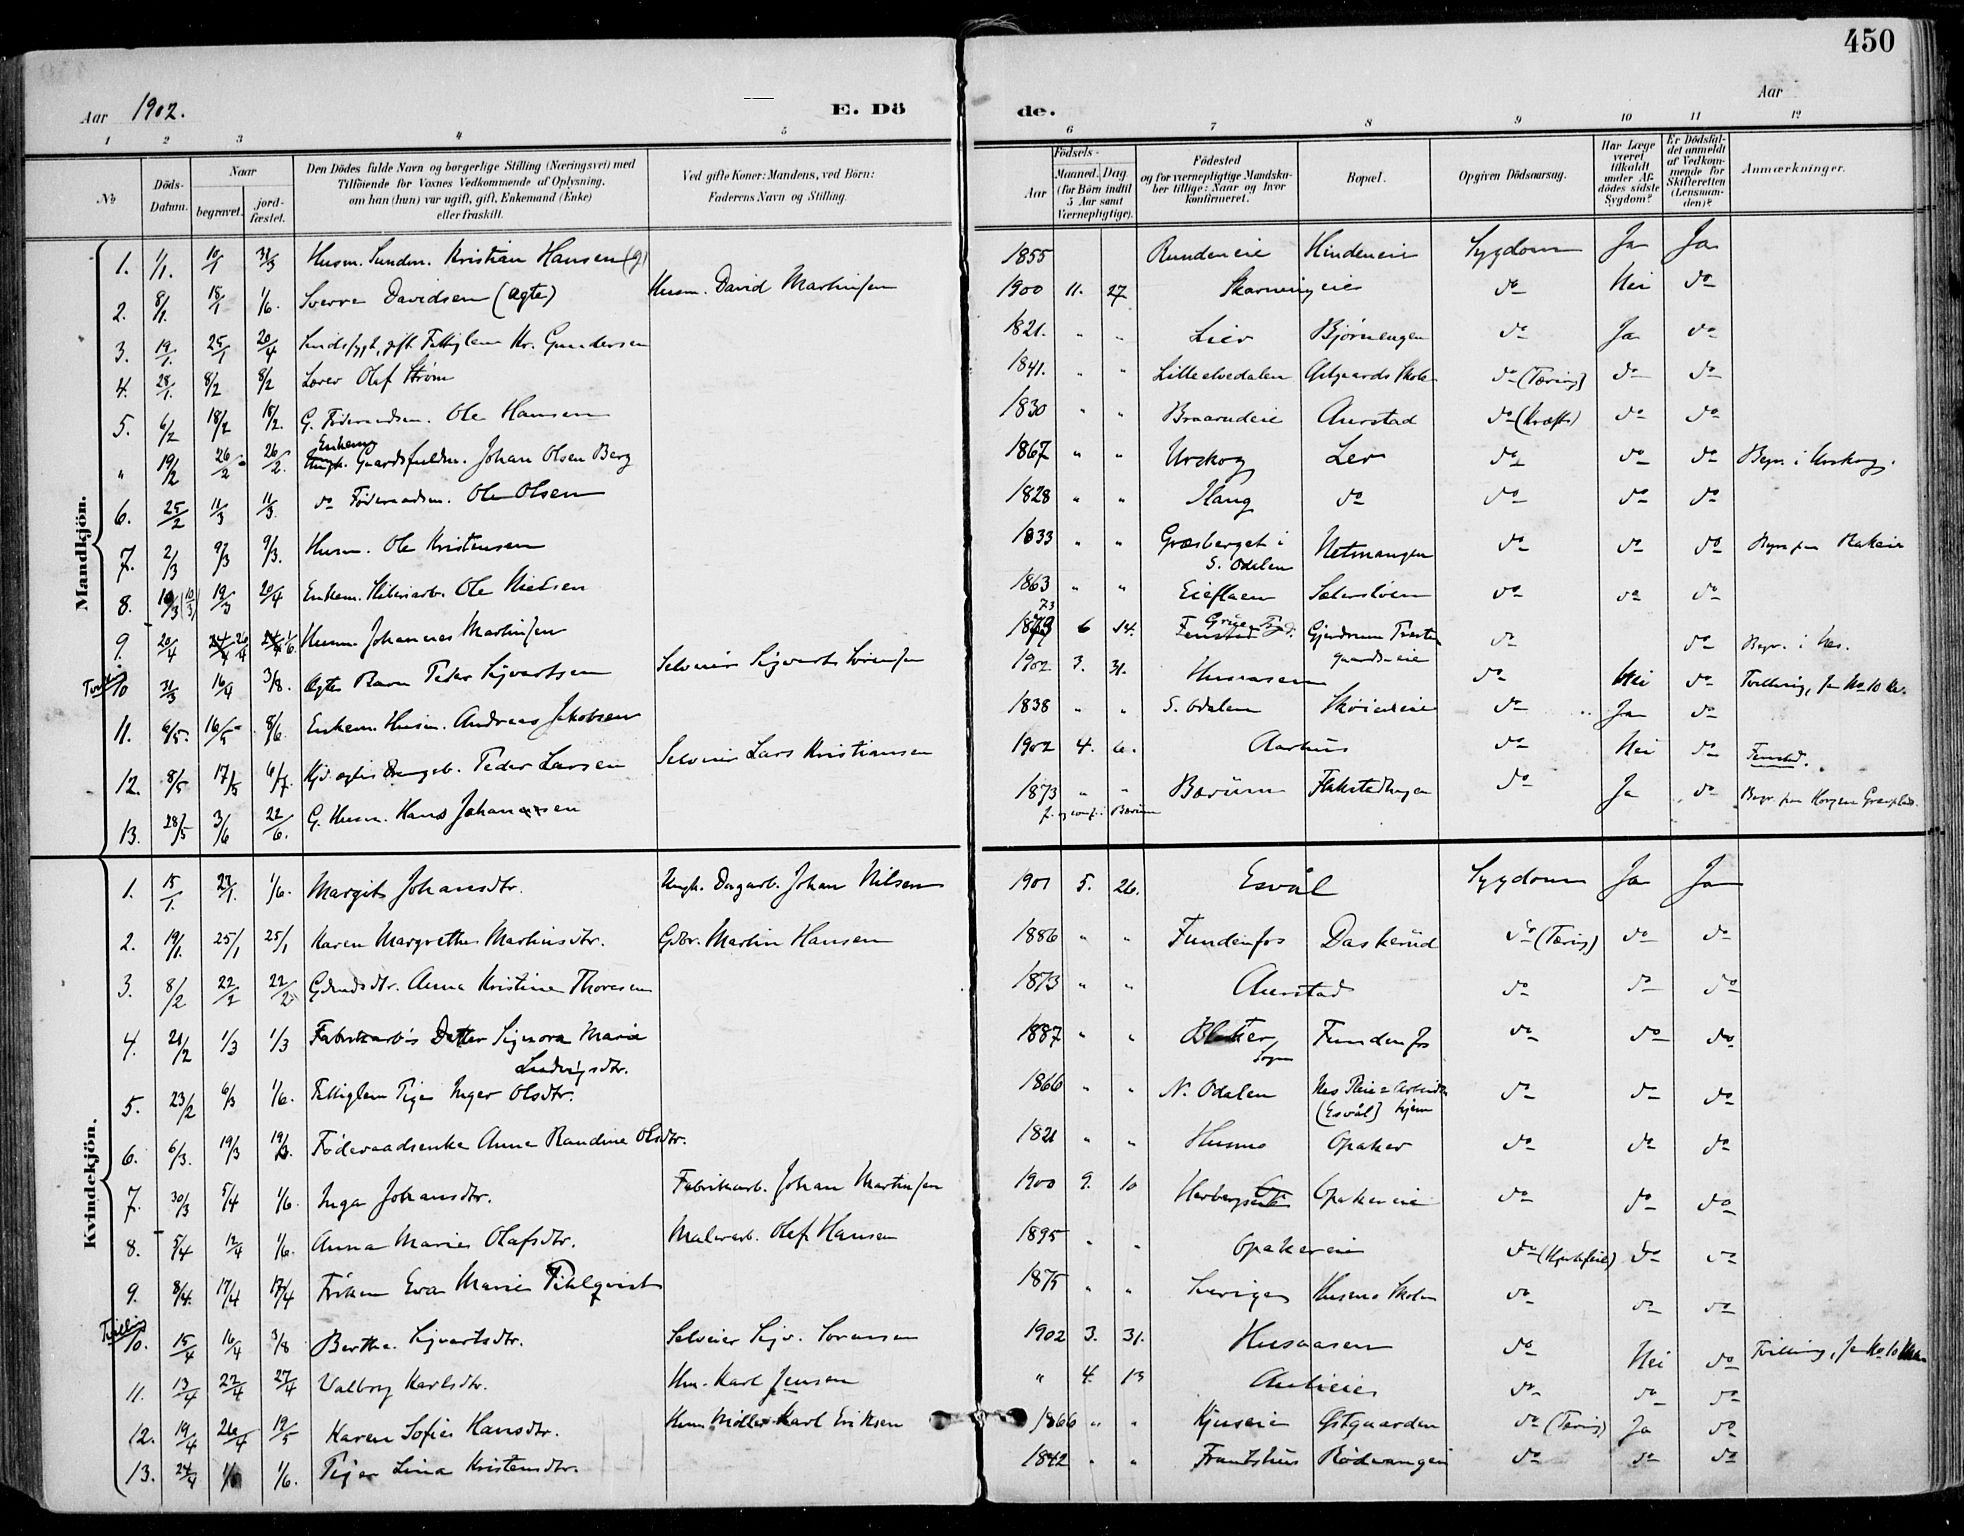 450
Aar 1902. E. Dö de. Aar
1 2 3 4 5 6 7 8 9 10 11 12
No
Döds-Datum.
Naar
begravet.
jord-fæstet.
Den Dödes fulde Navn og borgerlige Stilling (Næringsvei) med
Tilföiende for Voxnes Vedkommende af Oplysning,
om han (hun) var ugift, gift, Enkemand (Enke)
eller fraskilt.
Ved gifte Koner: Mandens, ved Börn:
Faderens Navn og Stilling.
Födsels-
Aar
Maaned. Dag.
(for Börn indtil
5 Aar samt
Værnepligtige).
Födested
og for værnepligtige Mandska-
ber tillige: Naar og hvor
konfirmeret.
Bopæl.
Opgiven Dödsaarsag.
Har Læge
været
tilkaldt
under Af-
dödes sidste
Sygdom?
Er Dödsfal-
det anmeldt
af Vedkom-
mende for
Skifteretten
(Lensman-
den)?
Anmærkninger.
Mandkjön.
1. 1/1. 10/1 31/3 Husm. Kristian Hansen (g) 1855 Rundeneie Hindeneie Sygdom Ja Ja
2. 8/1. 18/1 1/6. Sverre Davidsen (ægte) Husm. David Martinsen 1900 11. 27 Skarningeie do Nei do
3. 19/1. 25/1 20/4 Sindssygt, gift Fattiglem Kr. Gundersen 1821. " " Lier Bjørnengen do Ja do
4. 28/1. 8/2 8/2 Lærer Olaf Strøm 1841. " " Lilleelvedalen Skole do (Tæring) do do
5. 6/2 18/2 18/2. G. Føderaadsm. Ole Hansen 1830 " " Braarudeie Aurstad do (Kræft) do do
" 19/2 26/2 26/2. Enkem. Gaardsfuldm. Johan Olsen Berg 1867 " " Urskog Ler do do do Begr. i Urskog.
6. 25/2 11/3 11/3. do Føderaadsm. Ole Olsen 1828 " " Haug do do do do
7. 2/3 9/3 9/3. Husm. Ole Kristensen 1833 " " Græsberget i S. Odalen Netmangen do do do
8. 19/3 20/4 Enkem. Ole Nielsen 1863 " " do do do
9. 20/4 26/4 1/6. Husm. Johannes Martinsen 1873 6 14. Gjerdrum do do Begr. i Nes.
Tvilling 10 31/3 16/4 3/8. ægte Barn Peder Sigvartsen Selveier Sigvart Sørensen 1902 3. 31. Husaasen do Nei do Tvilling, se No 10 Kv.
11. 6/5. 16/5 8/6. Enkem. Husm. Andreas Jakobsen 1838 " " S. Odalen Skøieneie do Ja do
12. 8/5 17/5 6/7. Peder Larsen Selveier Lars Kristiansen 1902 4. 6. Aarhus do Nei do Fenstad.
13. 28/5 3/6 22/6. G. Husm. Hans Johannesen 1873 " " Bærum Flakstadhagen do Ja do
Kvindekjön.
1. 15/1. 27/1. 1/6. Margit Johansdtr. Ungk. Dagarb. Johan Nilsen 1901 5. 26. Esvål Sygdom Ja Ja
2. 19/1. 25/1 25/1 Karen Margrethe Martinsdtr. Gdbr. Martin Hansen 1886 " " Fundenfos Daskerud do (Tæring) do do
3. 8/2 22/2 22/2 Anna Kristine Thoresen 1873 " " Aurstad do do do
4. 21/2 1/3 1/3 Fabrikarb's Datter Signora Marie Ludvigsdtr. 1887 " " Blaker Sogn Fundenfos do do do
5. 23/2 6/3 1/6. Fattiglem Pige Inger Olsdtr. 1866 " " N. Odalen Nes Pleie & Arbeidshjem (Esvål) do do do
6. 6/3. 19/3 19/3. Føderaadsenke Anne Randine Olsdtr. 1821 " " Husmo Opaker do do do
7. 30/3 5/4 1/6. Inga Johansdtr. Fabrikarb. Johan Martinsen 1900 9. 10 Opakereie do do do
8. 5/4 12/4 1/6. Anna Marie Olafsdtr. Malerarb. Olaf Hansen 1895 " " Opakereie do (Hjertefeil) do do
9. 8/4. 17/4 17/4 Frøken Eva Marie Pihlqvist 1875 " " Sverige Husmo Skole do do do
Tvilling 10. 15/4 16/4 3/8 Berthe Sigvartsdtr. Selveier Sigv. Sørensen 1902 3. 31. Husaasen do Nei do Tvilling, se No 10 Mk.
11. 13/4 22/4 27/4 Valborg Karlsdtr. Hm. Karl Jensen " 4. 13 Aulieie do do do
12. 19/4 26/4 19/5 Karen Sofie Hansdtr. Husm Møller Karl Eriksen 1866 " " Kjuseie Gstgaarden do (Tæring) Ja do
13. 24/4 1/6. Pige Lina Kristensdtr. 1842 " " Frantshus Rødvangen do do do